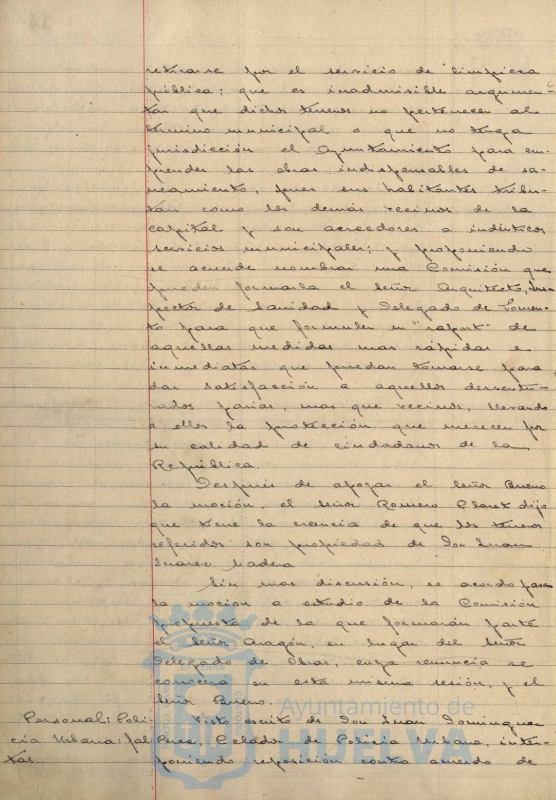 retirarse por el servicio de limpieza
pública; que es inadmisible argumen-
tar que dichos terrenos no pertenecen al
término municipal o que no tenga
jurisdicción el Ayuntamiento para em-
prender las obras indispensables de sa-
neamiento, pues sus habitantes tribu-
tan como los demás vecinos de la
capital y son acreedores a idénticos
servicios municipales; y proponiendo
se acuerde nombrar una Comisión que
pueden formarla el señor Arquitecto, Ins-
pector de Sanidad y Delegado de Fomen-
to para que formulen un "raport" de
aquellas medidas mas rápidas e
inmediatas que puedan tomarse para
dar satisfacción a aquellos desventu-
rados parias, mas que vecinos, llevando
a ellos la protección que merecen por
su calidad de ciudadanos de la
República.
Después de apoyar el señor Bueno
la moción, el señor Romero Claret dijo
que tiene la creencia de que los terrenos
referidos son propiedad de Don Juan
Suarez Madera
Sin mas discusión, se acordo pasar
la moción a estudio de la Comisión
propuesta de la que formarán parte
el señor Aragón, en lugar del señor
Delegado de Obras, cuya renuncia se
conocerá en esta misma sesión, y el
señor Bueno.
Personal: Poli- Visto escrito de Don Juan Dominguez
cia Urbana: fal Perez, Celador de Policia Urbana, inter-
tas. poniendo reposición contra acuerdo de
Ayuntamiento de
HUELVA